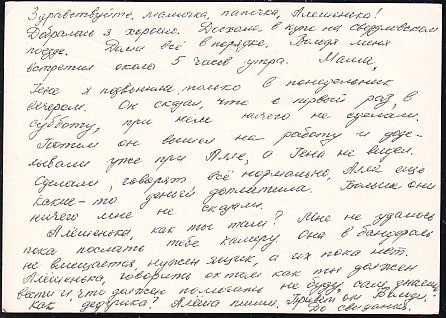 Здравствуйте, мамочка, папочка, Алёшенька!
Добралась я хорошо. Доехала в купе на свердловском
поезде. Дома всё в порядке, Володя меня
встретил около 5 часов утра. Мама,
Гене я позвонила только в понедельник
вечером. Он сказал, что в первый раз, в
субботу, при нём ничего не сделали.
Потом он вышел на работу и доде-
лывали уже при Алле, а Гена не видел.
Сделали, говорят всё нормально, Алле ещё
какие-то деньги доплатила. Больше он
ничего мне не сказал.
Алёшенька, как ты там? Мне не удалось
пока послать тебе камеру. Она в бандероль
не вмещается, нужен ящик, а их пока нет.
Алёшенька, говорить о том как ты должен
вести и что должен помогать не буду, сам знаешь.
Как дедушка? Алёша пиши. Привет от Володи.
До свидания.